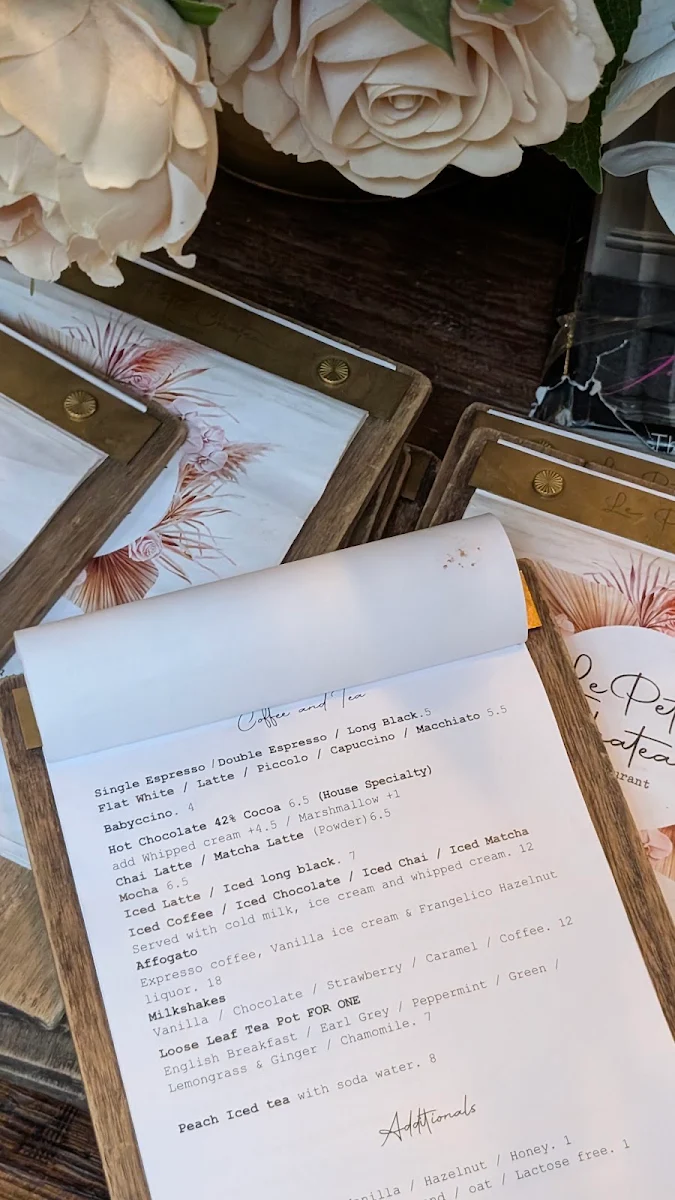 Le
Le Pet
Chatea
urant
Coffee and Tea
Single Espresso /Double Espresso / Long Black.5
Flat White / Latte / Piccolo / Capuccino / Macchiato 5.5
Babyccino. 4
Hot Chocolate 42% Cocoa 6.5 (House Specialty)
add Whipped cream +4.5 / Marshmallow +1
Chai Latte / Matcha Latte (Powder)6.5
Mocha 6.5
Iced Latte / Iced long black. 7
Iced Coffee / Iced Chocolate / Iced Chai / Iced Matcha
Served with cold milk, ice cream and whipped cream. 12
Affogato
Expresso coffee, Vanilla ice cream & Frangelico Hazelnut
liquor. 18
Milkshakes
Vanilla / Chocolate / Strawberry / Caramel / Coffee. 12
Loose Leaf Tea Pot FOR ONE
English Breakfast / Earl Grey / Peppermint / Green /
Lemongrass & Ginger / Chamomile. 7
Peach Iced tea with soda water. 8
Additionals
nilla / Hazelnut / Honey. 1
nd / oat / Lactose free. 1